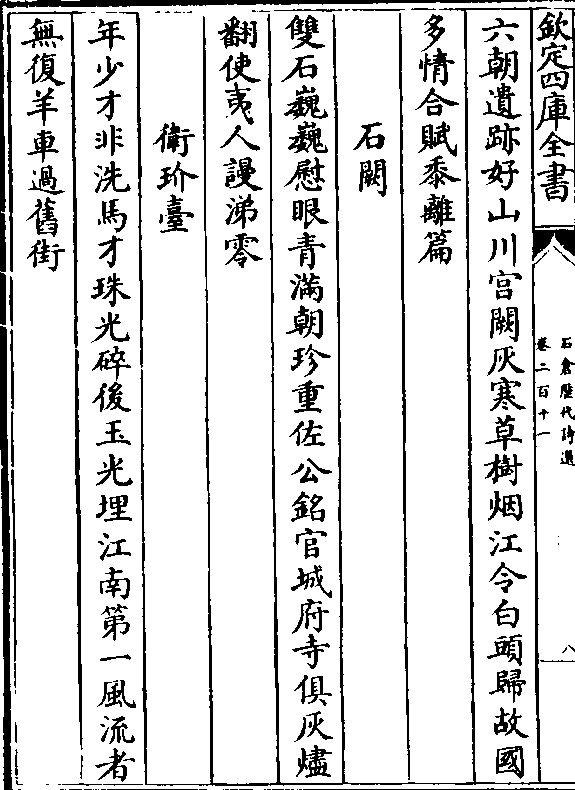 欽定四庫全書
石倉歷代詩選
卷二百十一
八
六朝遺跡好山川宮闕灰寒草樹烟江令白頭歸故國
多情合賦黍離篇
石闕
雙石巍巍慰眼青滿朝珍重佐公銘官城府寺俱灰燼
翻使夷人謾涕零
衛玠臺
年少才非洗馬才珠光碎後玉光埋江南第一風流者
無復羊車過舊街